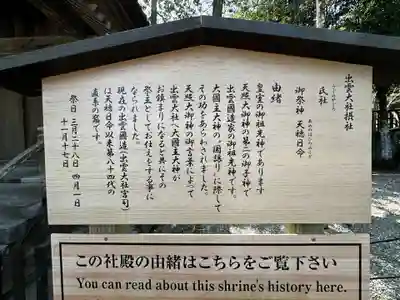 出雲大社摂社
氏社
御祭神 天穂日命
由緒
皇室の御祖光神であります
天照大御神の第二の御子神で
出雲國造家の御祖光神です。
大國主大神の「国譲り」に際して
その功をあらわされました。
天照大御神の御言葉によって
出雲大社へ大國主大神が
お鎮まりになると共にその
祭主としてお仕えをする事に
なられました。
現在の出雲國造(出雲大社宮司)
は天穂日命以来第八十四代の
直系の裔です。
祭日 三月二十八日 四月一日
十一月十七日
この社殿の由緒はこちらをご覧下さい
You can read about this shrine's history here.